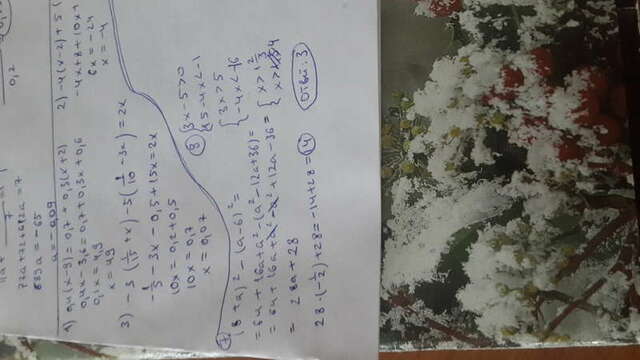 7
0,2
77a+72+612a=7
689a = -65
a = -0,09
1) 0,4(x-9) = 0,7 + 0,3(x+2)
0,4x - 3,6 = 0,7 + 0,3x + 0,6
0,1x = 4,9
x = 49
2) -4(x-2) + 5 (
-4x+8+10x+
6x = -24
x = -4
3) -3 (1/15 + x) - 5 (1/10 - 3x) = 2x
-1/5 - 3x - 0,5 + 15x = 2x
10x = 0,2+0,5
10x = 0,7
x = 0,07
7
(8+a)² - (a-6)² =
= 64 + 16a + a² - (a² - 12a + 36) =
= 64 + 16a + a² - a² + 12a - 36 =
= 28a + 28
28·(-1/2) + 28 = -14+28 = 14
8
{3x-5>0
15-4x<-1
{3x>5
-4x<-16
{x>1 2/3
x>4
Ответ: 3